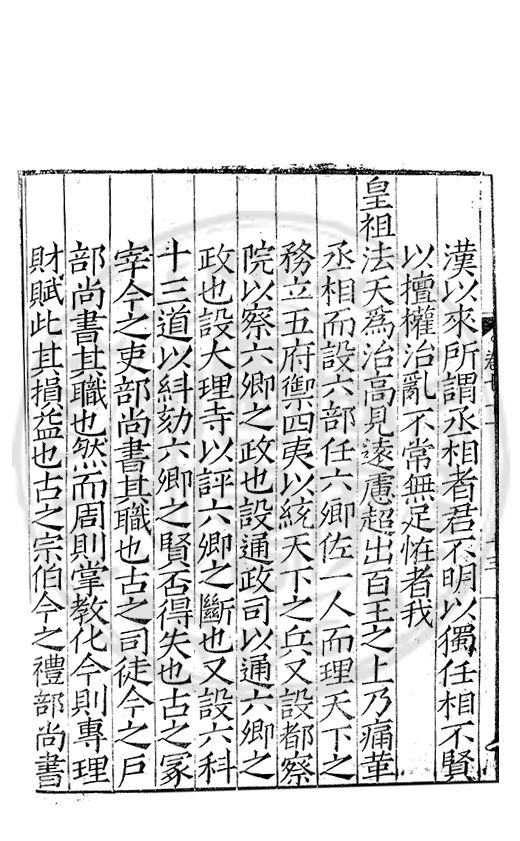 漢以來所謂丞相者君不明以獨任相不賢
以擅權治亂不常無足恠者我
皇祖法天爲治高見遠慮超出百王之上乃痛革
丞相而設六部任六卿佐一人而理天下之
務立五府禦四夷以統天下之兵又設都察
院以察六卿之政也設通政司以通六卿之
政也設大理寺以評六卿之斷也又設六科
十三道以糾劾六卿之賢否得失也古之冡
宰今之吏部尚書其職也古之司徒今之戶
部尚書其職也然而周則掌教化今則專理
財賦此其損益也古之宗伯今之禮部尚書